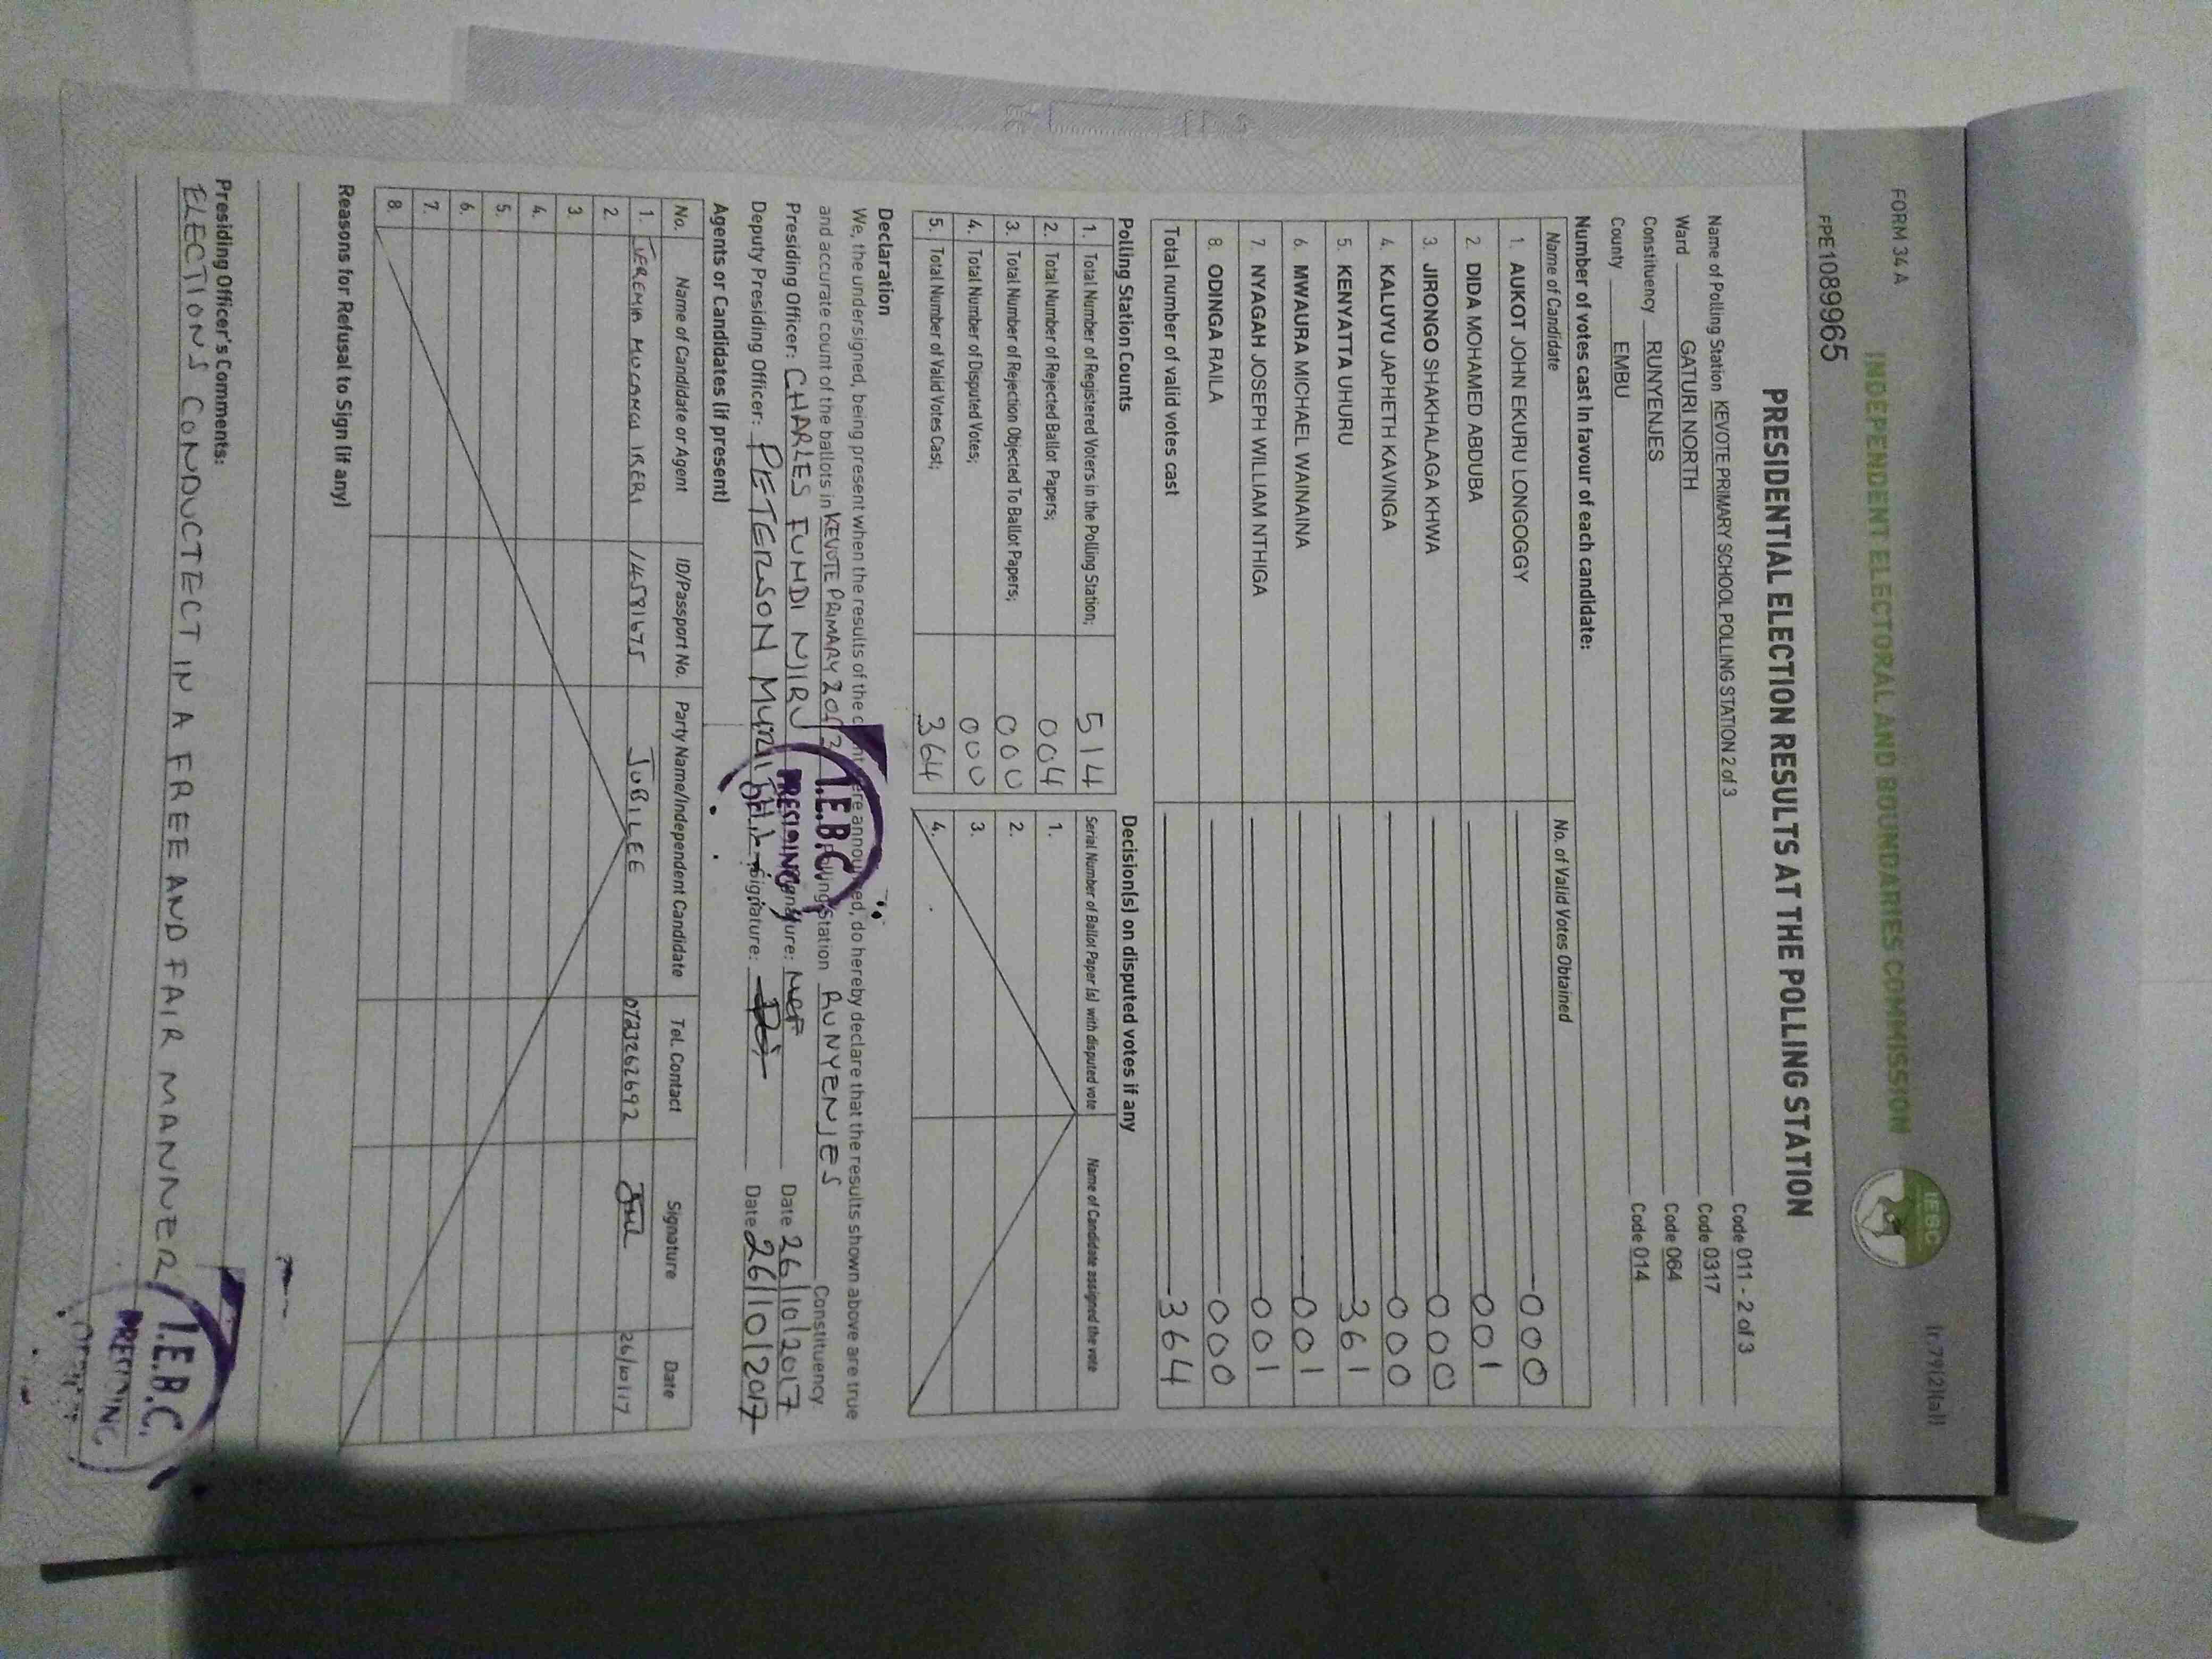 FORM 34 A
(r.79(2)(a))
INDEPENDENT ELECTORAL AND BOUNDARIES COMMISSION
IEBC
FPE1089965
PRESIDENTIAL ELECTION RESULTS AT THE POLLING STATION
Name of Polling Station KEVOTE PRIMARY SCHOOL POLLING STATION 2 of 3 Code 011 - 2 of 3
Ward GATURI NORTH Code 0317
Constituency RUNYENJES Code 064
County EMBU Code 014
Number of votes cast in favour of each candidate:
Name of Candidate No. of Valid Votes Obtained
1. AUKOT JOHN EKURU LONGOGGY 000
2. DIDA MOHAMED ABDUBA 001
3. JIRONGO SHAKHALAGA KHWA 000
4. KALUYU JAPHETH KAVINGA 000
5. KENYATTA UHURU 361
6. MWAURA MICHAEL WAINAINA 001
7. NYAGAH JOSEPH WILLIAM NTHIGA 001
8. ODINGA RAILA 000
Total number of valid votes cast 364
Polling Station Counts Decision(s) on disputed votes if any
1. Total Number of Registered Voters in the Polling Station; 514 Serial Number of Ballot Paper (s) with disputed vote Name of Candidate assigned the vote
2. Total Number of Rejected Ballot Papers; 004 1.
3. Total Number of Rejection Objected To Ballot Papers; 000 2.
4. Total Number of Disputed Votes; 000 3.
5. Total Number of Valid Votes Cast; 364 4.
Declaration
We, the undersigned, being present when the results of the count were announced, do hereby declare that the results shown above are true
and accurate count of the ballots in KEVOTE PRIMARY 2 of 3 Polling Station RUNYENJES Constituency
Presiding Officer: CHARLES FUNDI NJIRU Signature: Date 26/10/2017
Deputy Presiding Officer: PETERSON MURIITHI Signature: Date 26/10/2017
I.E.B.C.
PRESIDING
Agents or Candidates (if present)
No. Name of Candidate or Agent ID/Passport No. Party Name/Independent Candidate Tel. Contact Signature Date
1. JEREMIA IRERI 14581675 JUBILEE 0723262692 26/10/17
2.
3.
4.
5.
6.
7.
8.
Reasons for Refusal to Sign (if any)
Presiding Officer's Comments:
ELECTIONS CONDUCTECT IN A FREE AND FAIR MANNER
I.E.B.C.
PRESIDING